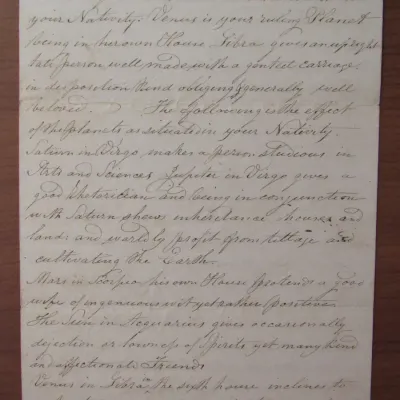 your Nativity. Venus is your ruling Planet
being in her own House, Libra gives an upright
tall person well made with a genteel carriage,
in disposition kind obliging & generally well
beloved. The following is the effect
of the Planets as situate in your Nativity.
Saturn in Virgo, makes a person studious in
Arts and Sciences, Jupiter in Virgo gives a
good Rhetorician and being in conjunction
with Saturn shews inheritance houses and
lands and worldly profit from tillage and
cultivating the Earth.
Mars in Scorpio his own House protends a good
wife of ingenuous wit yet rather positive
The Sun in Acquarius gives occasionally
dejection or lowness of Spirits, yet many kind
and affectionate Friends
Venus in Libra the sixth house inclines to